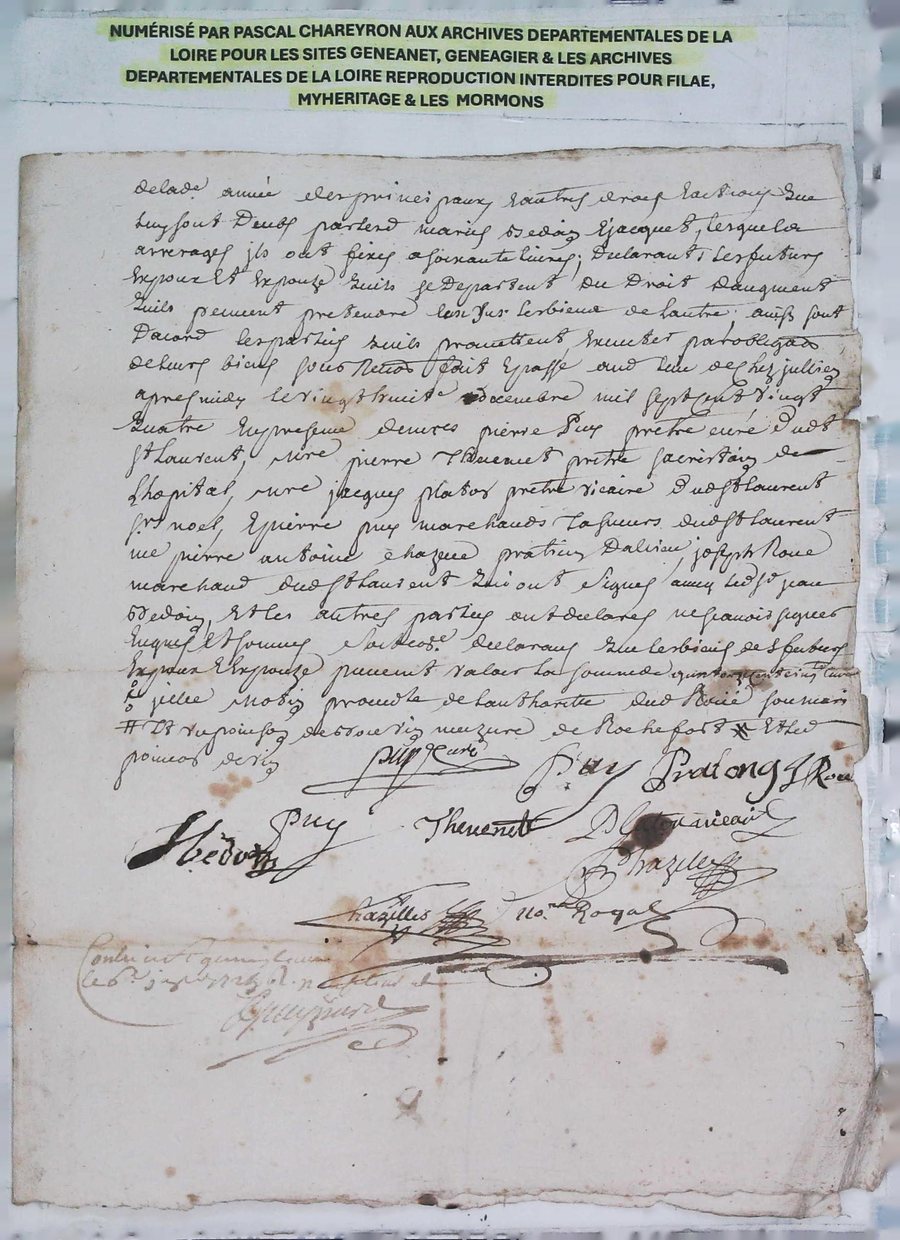 NUMÉRISÉ PAR PASCAL CHAREYRON AUX ARCHIVES DEPARTEMENTALES DE LA
LOIRE POUR LES SITES GENEANET, GENEAGIER & LES ARCHIVES
DEPARTEMENTALES DE LA LOIRE REPRODUCTION INTERDITES POUR FILAE,
MYHERITAGE & LES MORMONS
delad. année des principaux et autres droits et actions que
luy sont deubs par led marie Bedoin & jacquet, lesquels
arrerages ils ont fixés a soixante livres; declarants lesfuturs
Espoux Et Espouze quils se departent du Droit daugment
quils peuvent pretendre lun sur lesbiens de lautre, ainsi sont
Dacord les parties quils promettent executer par obligãon
de leurs biens fait & passé aud lieu de chez jullien
apres midy le vingt huite decembre mil sept cent vingt
quatre En presence de mres pierre Puy pretre curé dudt
St Laurent, mre pierre Thevenet pretre sacristain de
Lhopital, mre jacques platon pretre vicaire dud St laurent
srs noel, & pierre puy marchands dud St laurent
me pierre antoine chazelle praticien joseph Roue
marchand dud St Laurent qui ont signés avec led Sr jean
Bedoin, Et les autres parties ont declarés ne scavoir signer
Enquis Et sommés declarans que lesbiens desd futurs
Espoux & Espouze peuvent valoir la somme de livres
procede de lauthorité dud son mari
# Et un poinson de vin mezure de Rochefort # Et led
poinson de vin
puy Curé Puy Pralong J Roue
JBedoin Puy Thevenet Platon vicaire
Chazelle
Chazelles no.re Royal
Controllé
le 6e